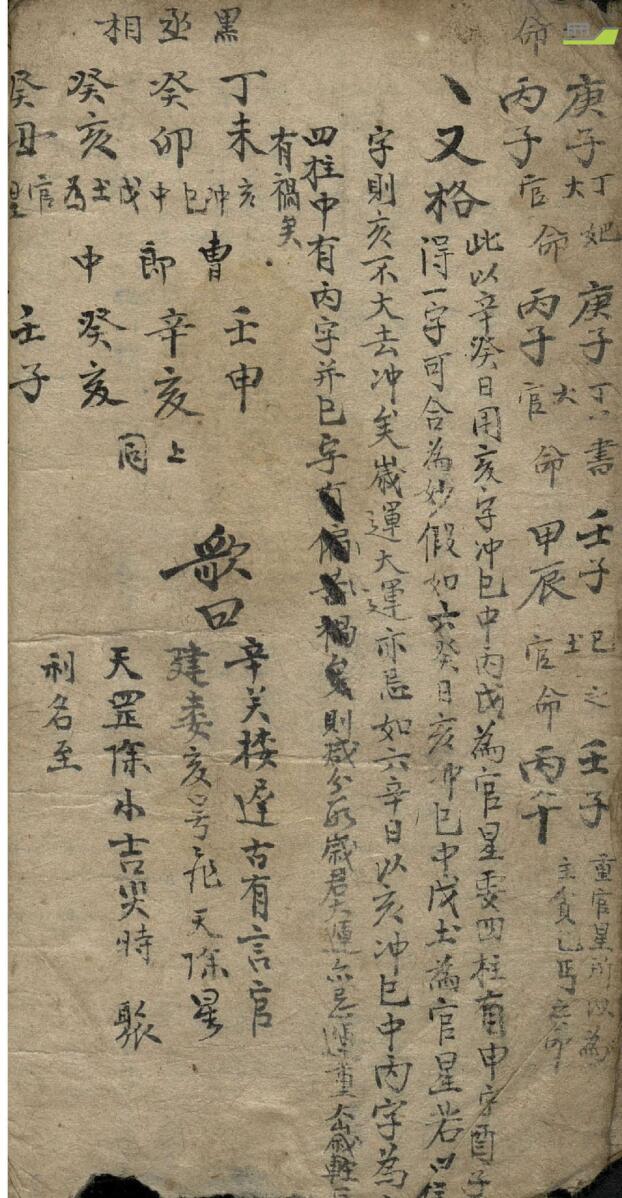 庚子 丁大 妃 庚子 丁大 書 壬子 巳土之 壬子
命 丙子 官命 丙子 官命 甲辰 官命 丙午
重官星所以為
主貧乞丐之命
又格 此以辛癸日用亥字冲巳中丙戊為官星要四柱有申字酉子
得一字可合為妙假如六癸日亥冲巳中戊土為官星若四柱
字則亥不大去冲矣歲運大運亦忌如六辛日以亥冲巳中丙字為
四柱中有丙字并巳字有禍矣則減分数歲君大運亦忌運重歲輕
有禍矣
黑丞相
丁未 癸卯 癸亥 癸丑
亥冲巳中戊土為官星
曹郎中
壬申 辛亥 癸亥 壬子
同上
歌曰
辛癸楼逢古有言官
建委亥号飛天除星
天罡除小吉災時聚
利名至